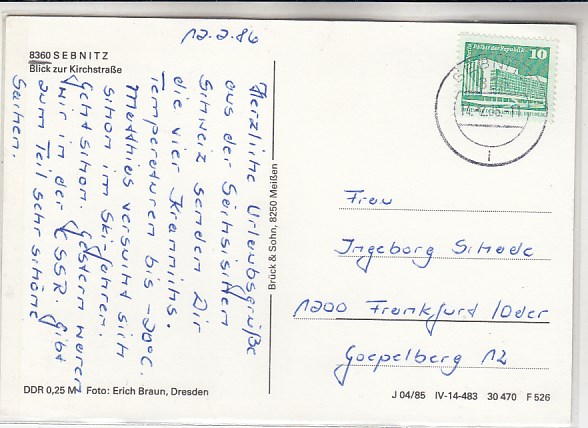 12.2.86
8360 SEBNITZ
Blick zur Kirchstraße
Herzliche Urlaubsgrüße
aus der Sächsischen
Schweiz senden Dir
die vier Kranichs.
Temperaturen bis -20°C.
Matthias versucht sich
schon im Skifahren.
Geht schon. Gestern waren
wir in der ČSSR. Gibt
zum Teil sehr schöne
Sachen.
DDR 0,25 M Foto: Erich Braun, Dresden
Brück & Sohn, 8250 Meißen
Palast der Republik
10
SEBNITZ
Frau
Ingeborg Schade
1200 Frankfurt/Oder
Goepelberg 12
J 04/85 IV-14-483 30 470 F 526